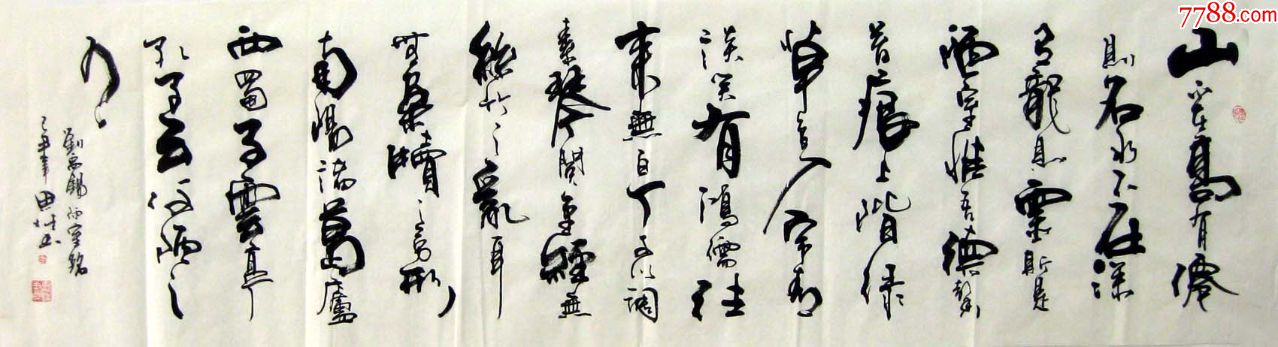 7788.com
山不在高有僊
則名水不在深
有龍則靈斯是
陋室惟吾德馨
苔痕上階綠
草色入帘青
談笑有鴻儒往
來無白丁可以調
素琴閱金經無
絲竹之亂耳
無案牘之勞形
南陽諸葛廬
西蜀子雲亭
孔子云何陋之
有
劉禹錫陋室銘
年
書